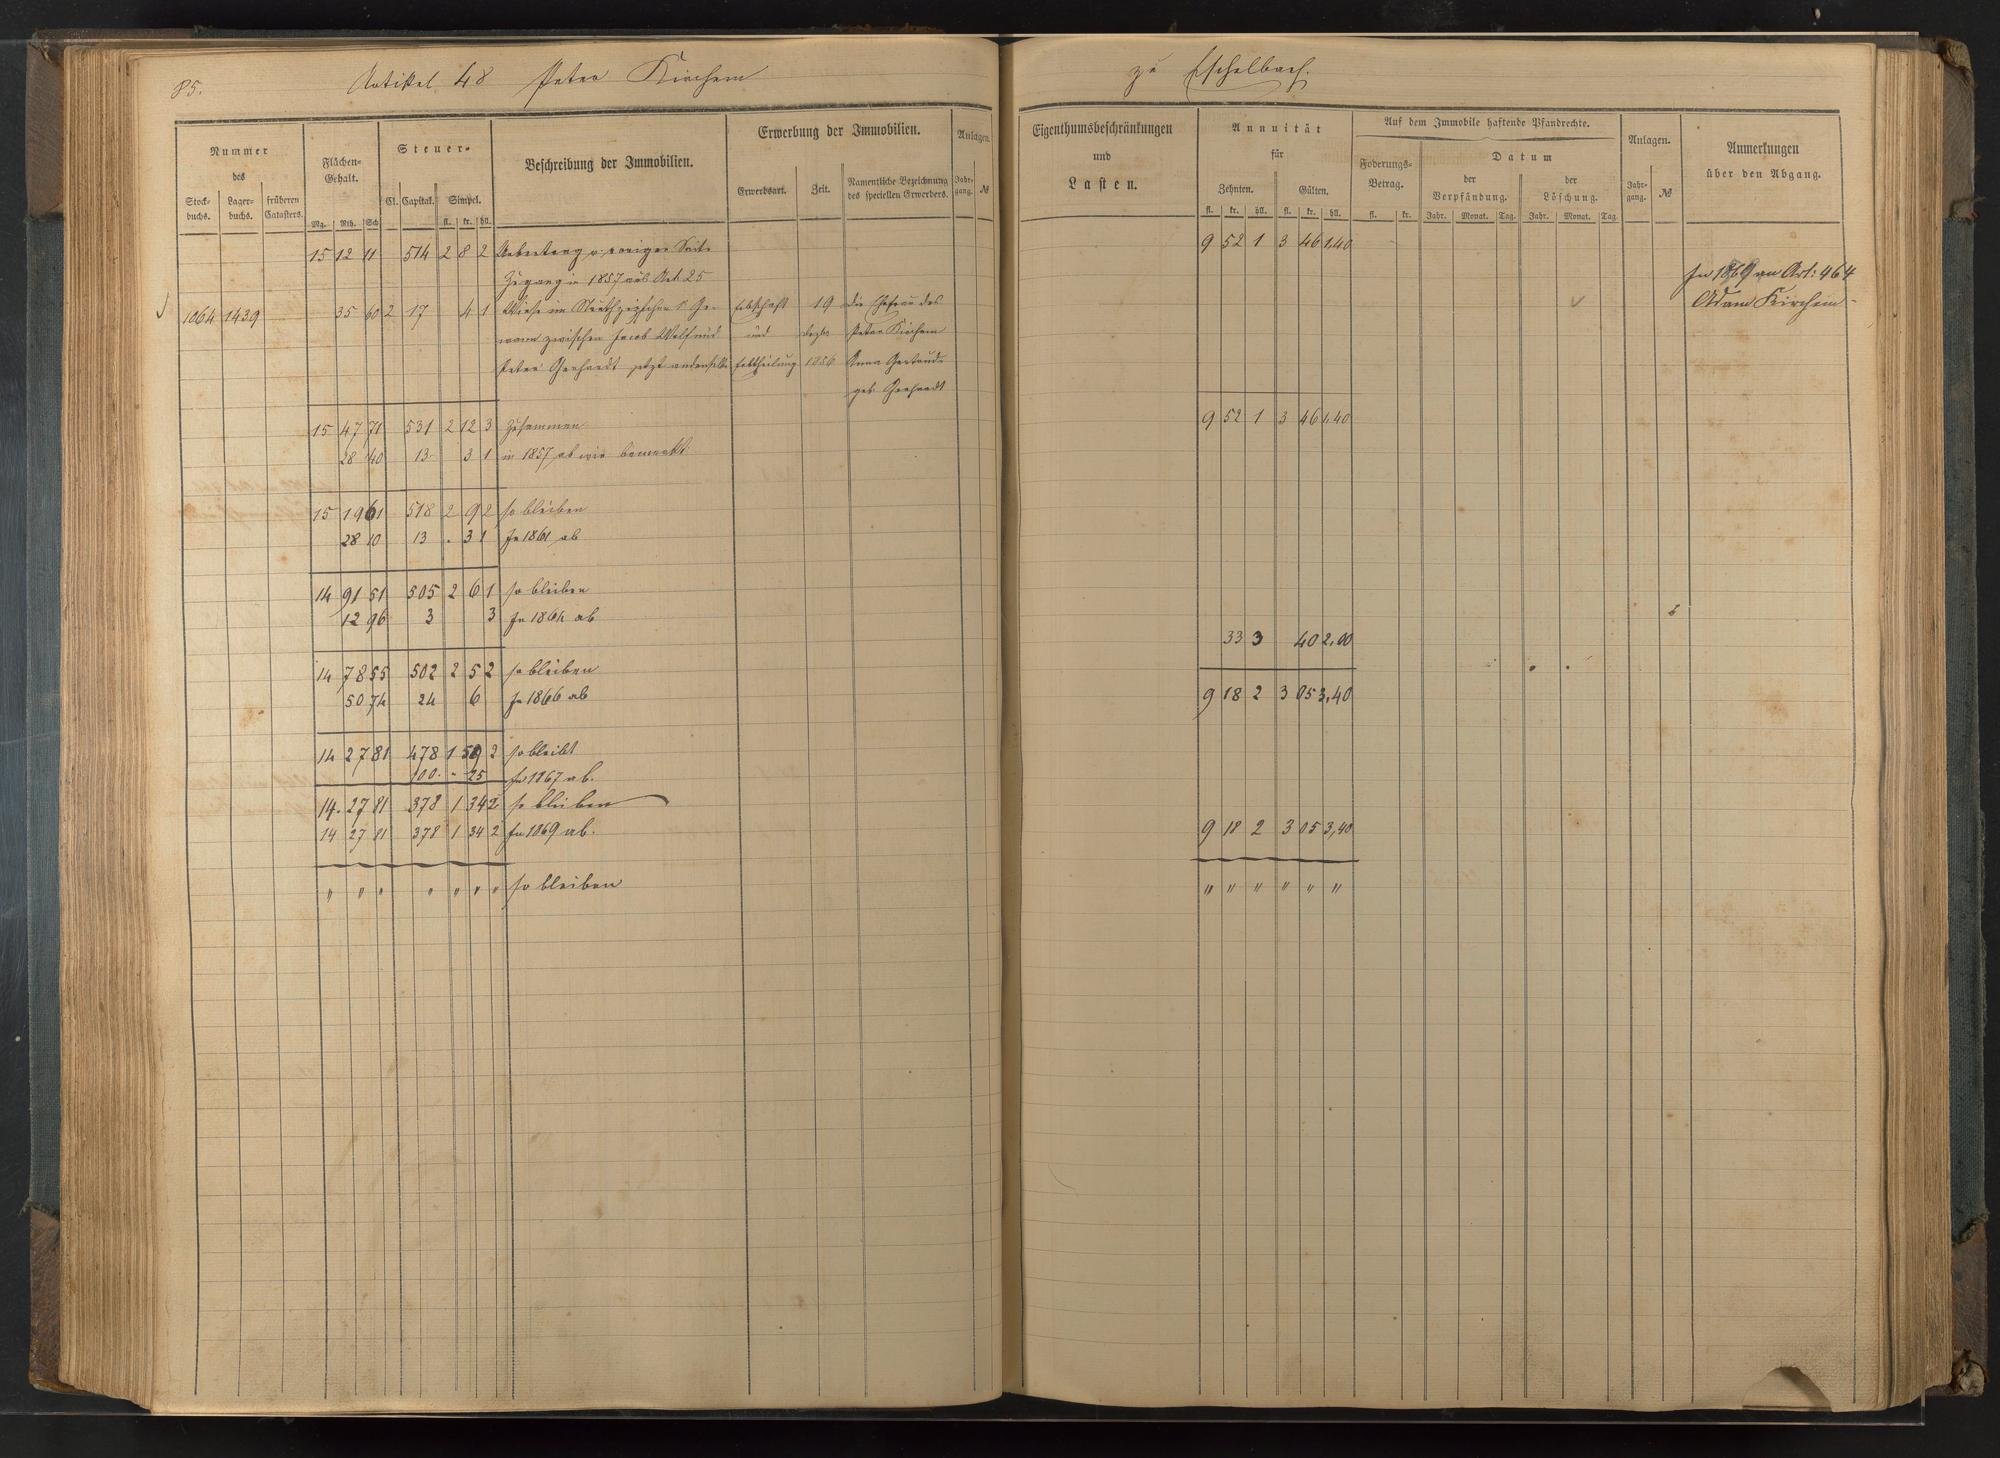 85.
Artikel 48 Peter Kirchem
zu Eschelbach.
Nummer
des
Stock-
buchs.
Lager-
buchs.
früheren
Catasters.
Flächen-
Gehalt.
Mg. Rth. Sch
Steuer-
Cl. Capital. Simpel.
fl. kr. hll.
Beschreibung der Immobilien.
Erwerbung der Immobilien.
Erwerbsart. Zeit.
Namentliche Bezeichnung
des speciellen Erwerbers.
Anlagen.
Jahr-
gang. №
Eigenthumsbeschränkungen
und
Lasten.
Annuität
für
Zehnten. Gülten.
fl. kr. hll. fl. kr. hll.
Auf dem Immobile haftende Pfandrechte.
Foderungs-
Betrag.
fl. kr.
Datum
der
Verpfändung.
Jahr. Monat. Tag.
der
Löschung.
Jahr. Monat. Tag.
Anlagen.
Jahr-
gang. №
Anmerkungen
über den Abgang.
15 12 11 514 2 8 2 Uebertrag v. voriger Seite
9 52 1 3 46 1,40
Zugang in 1857 aus Art. 25
In 1869 an Art: 464
Adam Kirchem
1064 1439 35 60 2 17 4 1 Wiese im 5r Ge-
Erbschaft 19 die Ehefrau des
wann zwischen Jacob Wolf und
und Dezbr Peter Kirchem
Peter Gerhardt jetzt
Erbtheilung 1856 Anna Gertrude
geb. Gerhardt
15 47 71 531 2 12 3 Zusammen
9 52 1 3 46 1,40
28 10 13 3 1 in 1857 ab wie bemerkt
15 19 61 518 2 9 2 so bleiben
28 10 13 . 3 1 In 1861 ab
14 91 51 505 2 6 1 so bleiben
12 96 3 3 In 1864 ab
33 3 40 2,00
14 78 55 502 2 5 2 so bleiben
50 74 24 6 In 1866 ab
9 18 2 3 05 3,40
14 27 81 478 1 59 2 so bleibt
100. - 25 In 1867 ab.
14. 27 81 378 1 34 2 so bleiben
14 27 81 378 1 34 2 In 1869 ab.
9 18 2 3 05 3,40
" " " " " " " so bleiben
" " " " " "